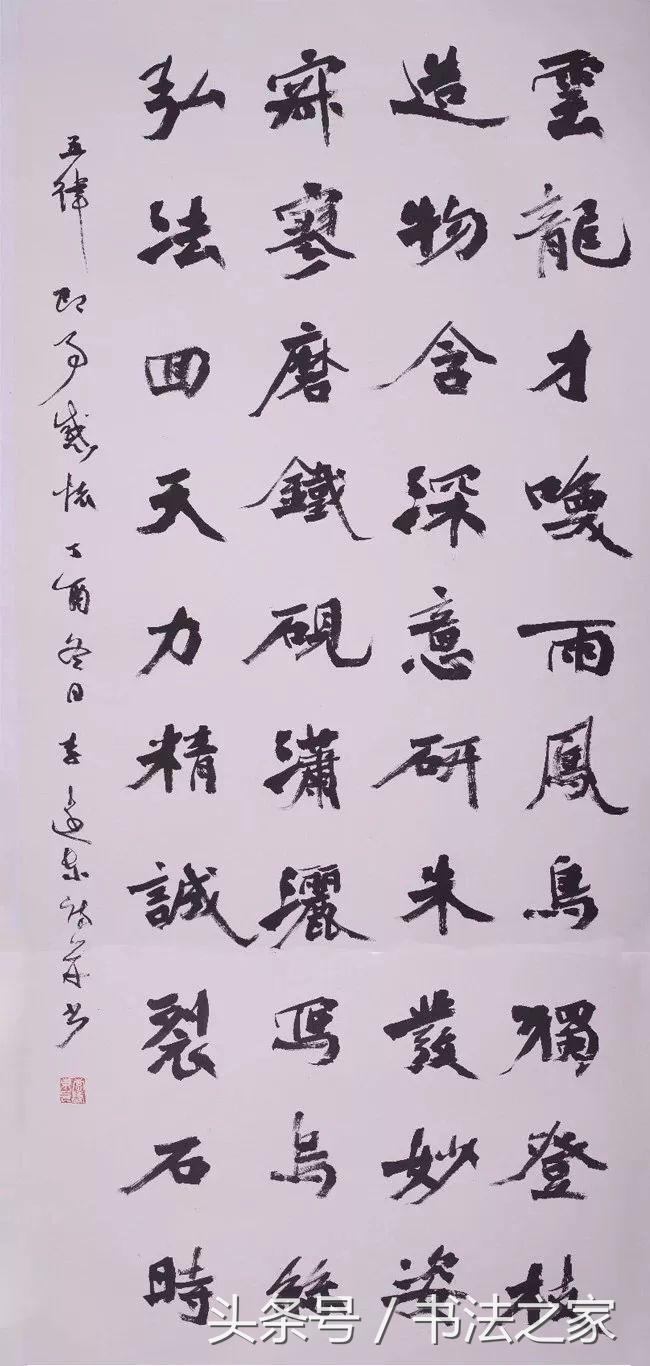 雲龍才喚雨鳳鳥獨登枝
造物含深意研朱發妙姿
寂寥磨鐵硯瀟灑寫烏絲
弘法回天力精誠裂石時
五律 即事感懷 丁酉冬日 李遠東詩並書
头条号 / 书法之家